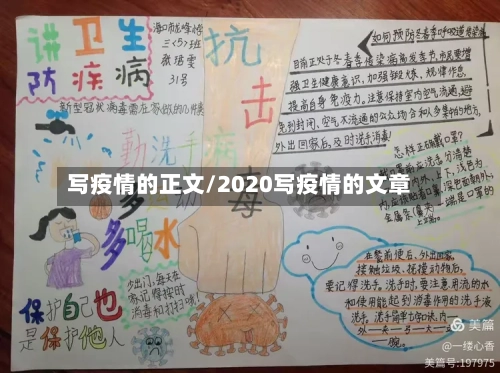 讲卫生
防疾病
三<5>班
31号
抗
击
病
毒
如何预防冬春季呼吸道传染病
目前正处于冬春季传染病高发季节,市民要增
强卫生健康意识,加强锻炼,规律作息,
提高自身免疫力。注意保持室内空气流通,避
免到封闭、空气不流通的公众场合和人多集中的地方,
外出回家后,及时洗手消毒!
勤洗手
多
多喝水
写疫情的正文/2020写疫情的文章
怎样正确戴口罩?
在餐前便后、外出回家
接触垃圾、抚摸动物后,
要记得洗手。洗手时,要注意用流动水
和使用能起到消毒作用的洗手液
洗手。洗手简单七字口诀,内
外—夹—弓—大—立
—腕。
少出门,每天在
家记得按时
消毒和打扫哦!
保护自己也
是保护他人
美篇
@一缕心香
美篇号:197975